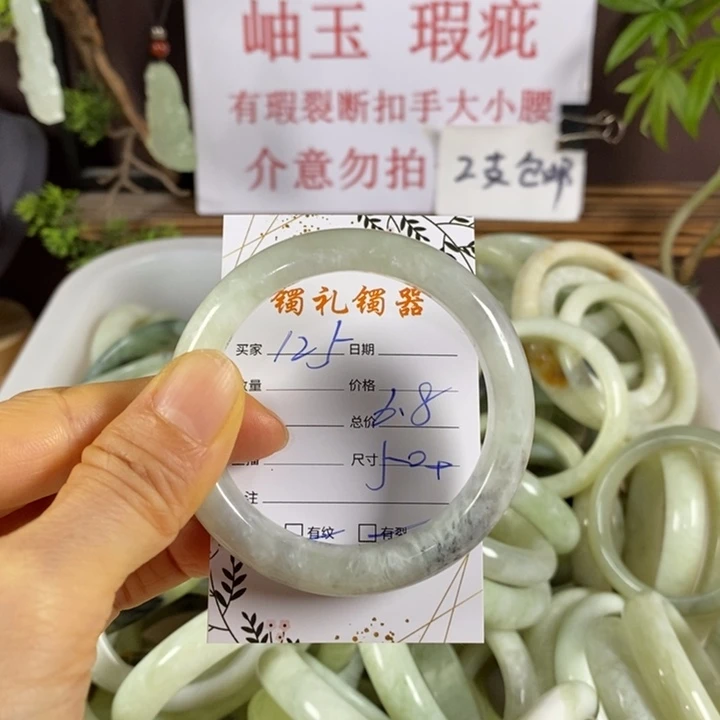 岫玉 瑕疵
有瑕裂断扣手大小腰
介意勿拍 2支包邮
镯礼镯器
买家 125 日期
数量 价格
总价 6.8
尺寸 50+
注
有纹 有裂